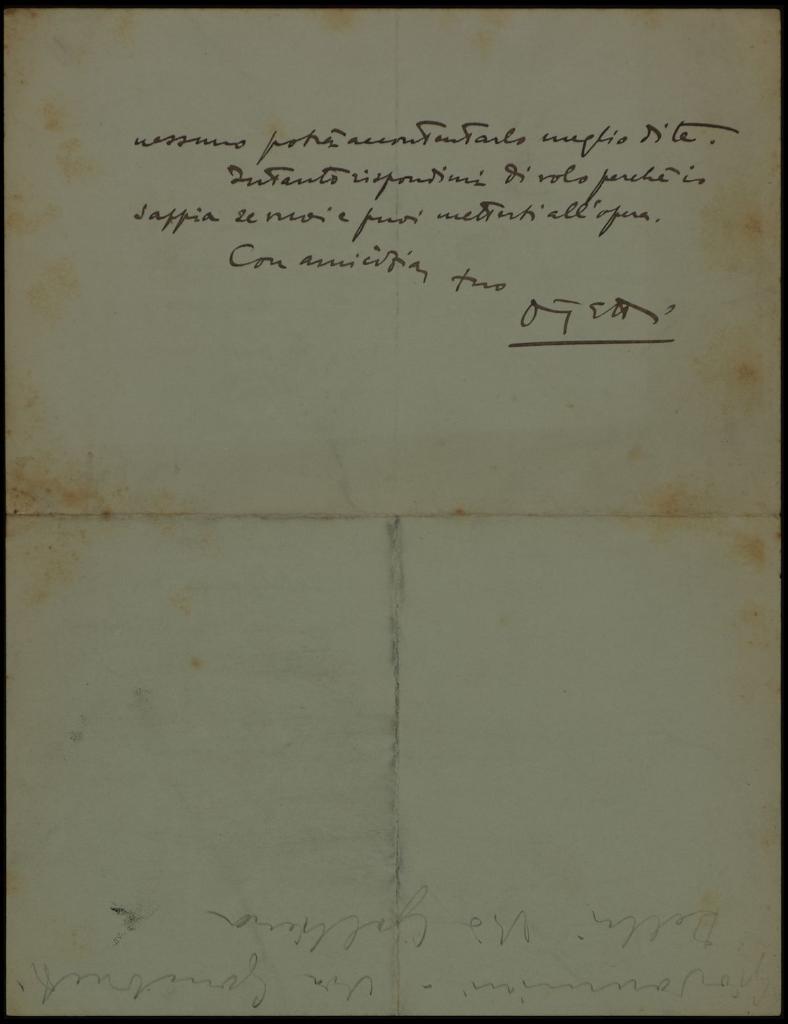 nessuno potrà accontentarlo meglio di te.
Intanto rispondimi di volo perché io
sappia se vuoi e puoi metterti all'opera.
Con amicizia, tuo
Ojetti
via